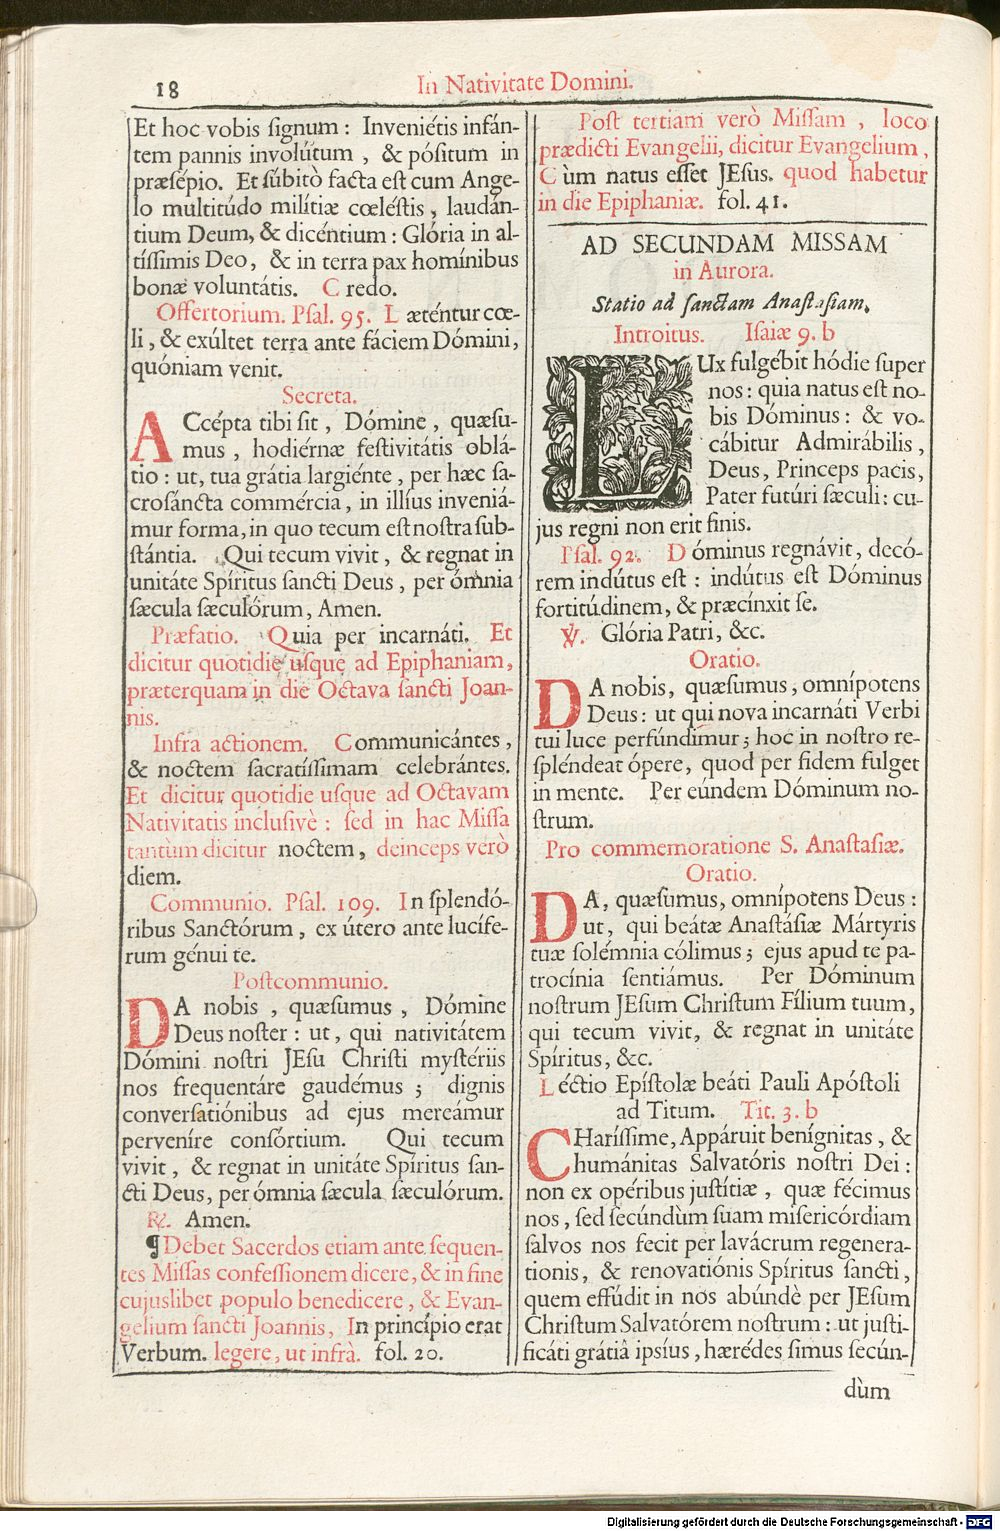 18
In Nativitate Domini.
Et hoc vobis ſignum: Inveniétis infán-
tem pannis involútum, & póſitum in
præſépio. Et ſúbitò facta eſt cum Ange-
lo multitúdo milítiæ cœléſtis, laudán-
tium Deum, & dicéntium: Glória in al-
tíſſimis Deo, & in terra pax homínibus
bonæ voluntátis. Credo.
Offertorium. Pſal. 95. Læténtur cœ-
li, & exúltet terra ante fáciem Dómini,
quóniam venit.
Secreta.
ACcépta tibi ſit, Dómine, quæſu-
mus, hodiérnæ feſtivitátis oblá-
tio: ut, tua grátia largiénte, per hæc ſa-
croſáncta commércia, in illíus inveniá-
mur forma, in quo tecum eſt noſtra ſub-
ſtántia. Qui tecum vivit, & regnat in
unitáte Spíritus ſancti Deus, per ómnia
ſæcula ſæculórum, Amen.
Præfatio. Quia per incarnáti. Et
dicitur quotidie uſque ad Epiphaniam,
præterquam in die Octava ſancti Joan-
nis.
Infra actionem. Communicántes,
& noctem ſacratíſſimam celebrántes.
Et dicitur quotidie uſque ad Octavam
Nativitatis incluſivè: ſed in hac Miſſa
tantùm dicitur noctem, deinceps verò
diem.
Communio. Pſal. 109. In ſplendó-
ribus Sanctórum, ex útero ante lucífe-
rum génui te.
Poſtcommunio.
DA nobis, quæſumus, Dómine
Deus noſter: ut, qui nativitátem
Dómini noſtri JEſu Chriſti myſtériis
nos frequentáre gaudémus; dignis
converſatiónibus ad ejus mereámur
perveníre conſórtium. Qui tecum
vivit, & regnat in unitáte Spíritus ſan-
cti Deus, per ómnia ſæcula ſæculórum.
℟. Amen.
¶ Debet Sacerdos etiam ante ſequen-
tes Miſſas confeſſionem dicere, & in fine
cujuslibet populo benedicere, & Evan-
gelium ſancti Joannis, In princípio erat
Verbum. legere, ut infrà. fol. 20.
Poſt tertiam verò Miſſam, loco
prædicti Evangelii, dicitur Evangelium,
Cùm natus eſſet JEſus. quod habetur
in die Epiphaniæ. fol. 41.
AD SECUNDAM MISSAM
in Aurora.
Statio ad ſanctam Anaſtaſiam.
Introitus. Iſaiæ 9. b
LUx fulgébit hódie ſuper
nos: quia natus eſt no-
bis Dóminus: & vo-
cábitur Admirábilis,
Deus, Princeps pacis,
Pater futúri ſæculi: cu-
jus regni non erit finis.
Pſal. 92. Dóminus regnávit, decó-
rem indútus eſt: indútus eſt Dóminus
fortitúdinem, & præcínxit ſe.
℣. Glória Patri, &c.
Oratio.
DA nobis, quæſumus, omnípotens
Deus: ut qui nova incarnáti Verbi
tui luce perfúndimur; hoc in noſtro re-
ſpléndeat ópere, quod per fidem fulget
in mente. Per eúndem Dóminum no-
ſtrum.
Pro commemoratione S. Anaſtaſiæ.
Oratio.
DA, quæſumus, omnípotens Deus:
ut, qui beátæ Anaſtáſiæ Mártyris
tuæ ſolémnia cólimus; ejus apud te pa-
trocínia ſentiámus. Per Dóminum
noſtrum JEſum Chriſtum Fílium tuum,
qui tecum vivit, & regnat in unitáte
Spíritus, &c.
Léctio Epíſtolæ beáti Pauli Apóſtoli
ad Titum. Tit. 3. b
CHaríſſime, Appáruit benígnitas, &
humánitas Salvatóris noſtri Dei:
non ex opéribus juſtítiæ, quæ fécimus
nos, ſed ſecúndùm ſuam miſericórdiam
ſalvos nos fecit per lavácrum regenera-
tionis, & renovatiónis Spíritus ſancti,
quem effúdit in nos abúndè per JEſum
Chriſtum Salvatórem noſtrum: ut juſti-
ficáti grátiâ ipsíus, hærédes ſimus ſecún-
dùm
Digitalisierung gefördert durch die Deutsche Forschungsgemeinschaft - DFG